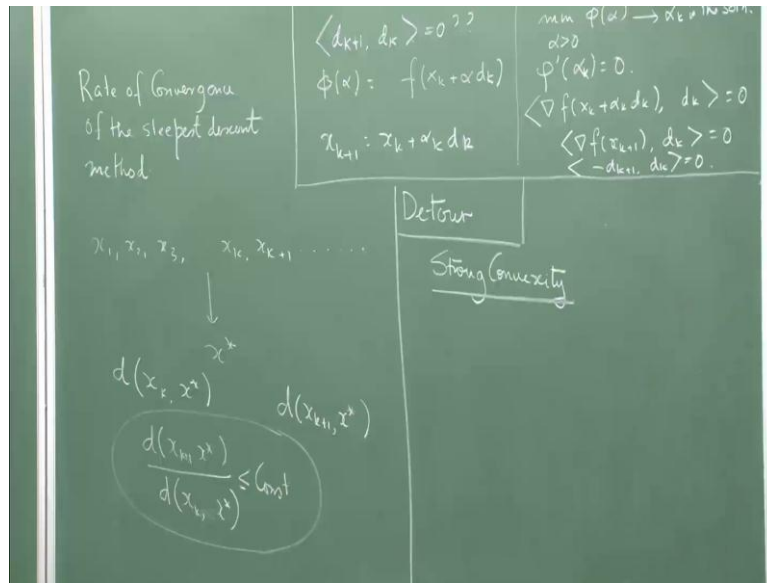 Rate of Convergence
of the steepest descent
method.
x₁, x₂, x₃, x_k, x_{k+1} ......
↓
x*
d(x_k, x*)
d(x_{k+1}, x*)
d(x_{k+1}, x*)
d(x_k, x*)
≤ Const
<d_{k+1}, d_k> = 0 ??
φ(α) = f(x_k + α d_k)
x_{k+1} = x_k + α_k d_k
min φ(α) → α_k
α>0
φ'(α_k) = 0.
<∇f(x_k + α_k d_k), d_k> = 0
<∇f(x_{k+1}), d_k> = 0
<-d_{k+1}, d_k> = 0.
Detour
Strong Convexity